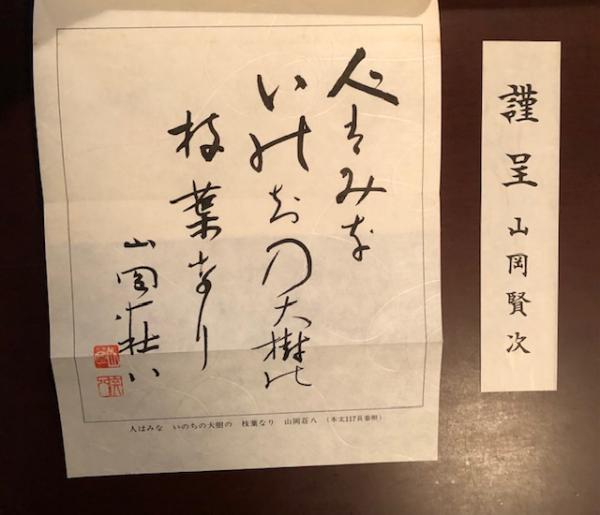 人はみな
いのちの大樹の
枝葉なり
山岡荘八
人はみな いのちの大樹の 枝葉なり 山岡荘八 (本文117頁参照)
謹呈 山岡賢次